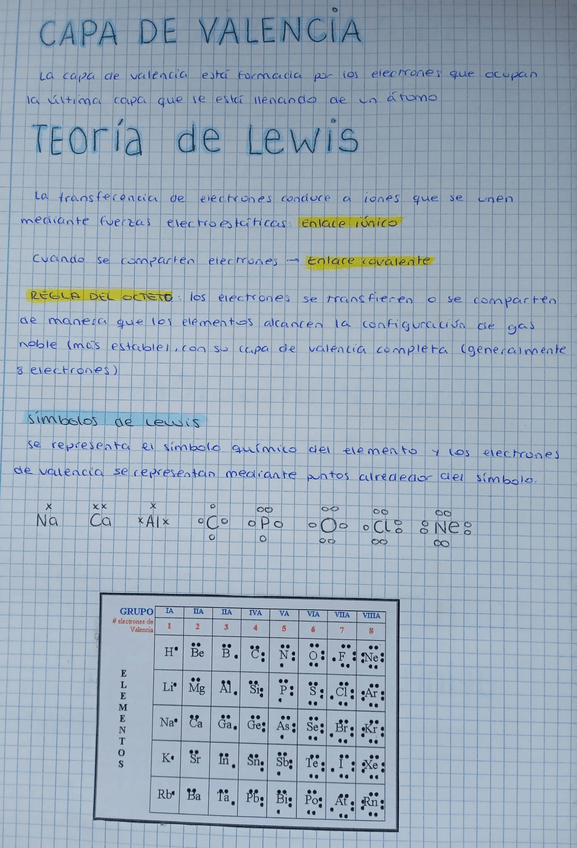 CAPA DE VALENCIA
La capa de valencia está formada por los electrones que ocupan
la última capa que se está llenando de un átomo
TEoría de Lewis
La transferencia de electrones conduce a iones que se unen
mediante fuerzas electroestáticas: Enlace iónico
Cuando se comparten electrones → Enlace covalente
REGLA DEL OCTETO: los electrones se transfieren o se comparten
de manera que los elementos alcancen la configuración de gas
noble (más estable), con su capa de valencia completa (generalmente
8 electrones)
símbolos de Lewis
se representa el símbolo químico del elemento y los electrones
de valencia se representan mediante puntos alrededor del símbolo.
Na Ca Al C P O Cl Ne
GRUPO IA IIA IIA IVA VA VIA VIIA VIIIA
# electrones de
Valencia 1 2 3 4 5 6 7 8
ELEMENTOS
H Be B C N O F Ne
Li Mg Al Si P S Cl Ar
Na Ca Ga Ge As Se Br Kr
K Sr In Sn Sb Te I Xe
Rb Ba Ta Pb Bi Po At Rn